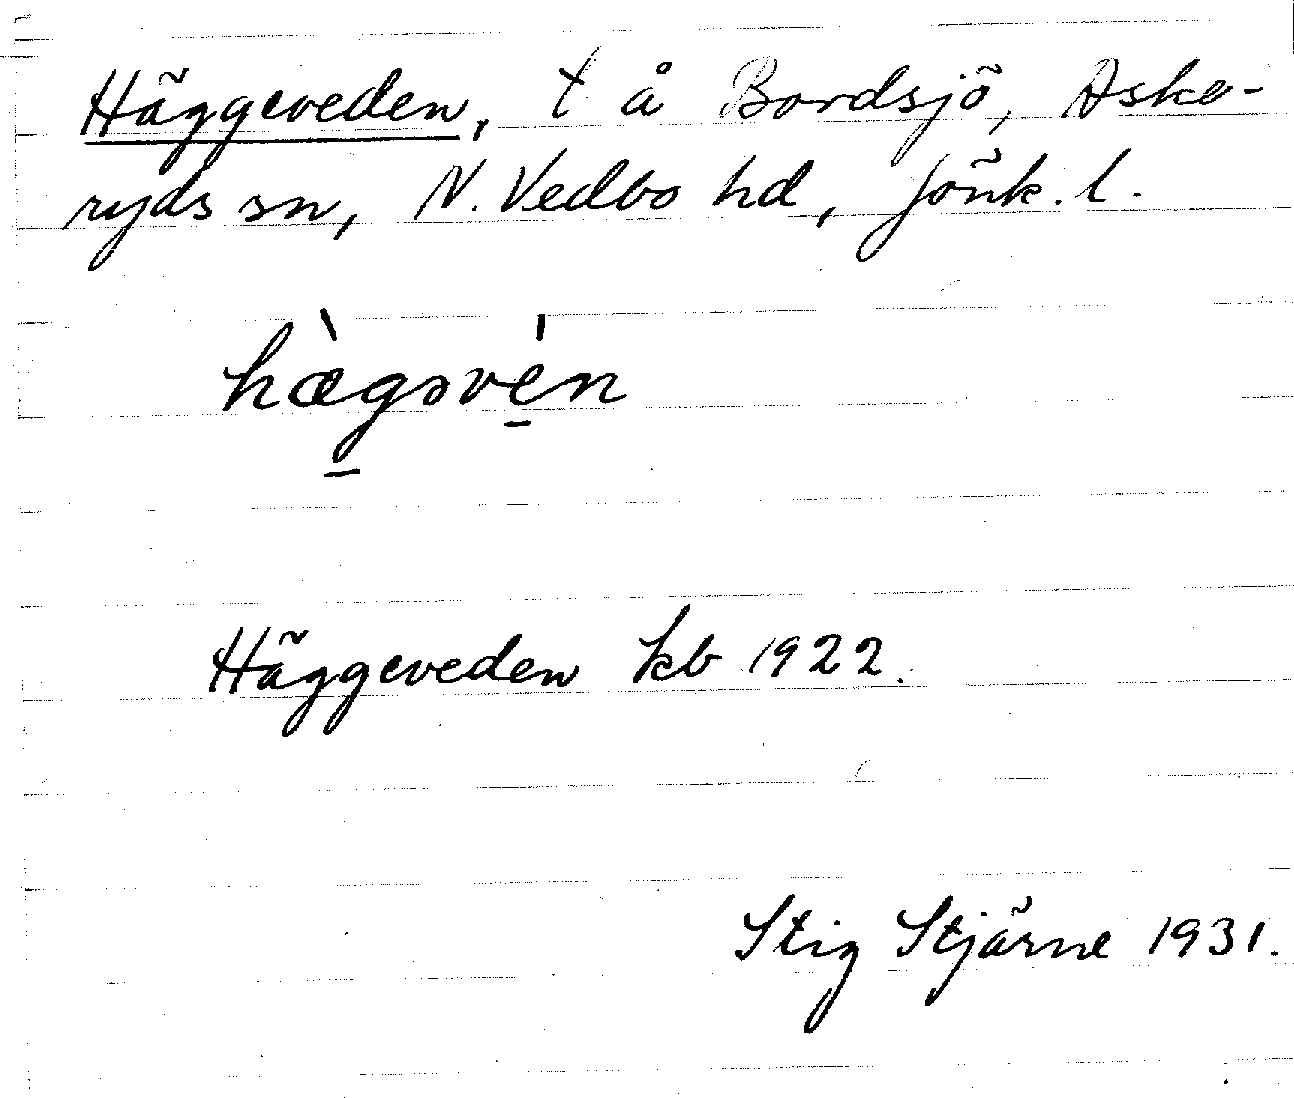 Häggeveden, t å Bordsjö, Aske-
ryds sn, N. Vedbo hd, Jönk. l.
hæ̀gəvén
Häggeveden kb 1922.
Stig Stjärne 1931.